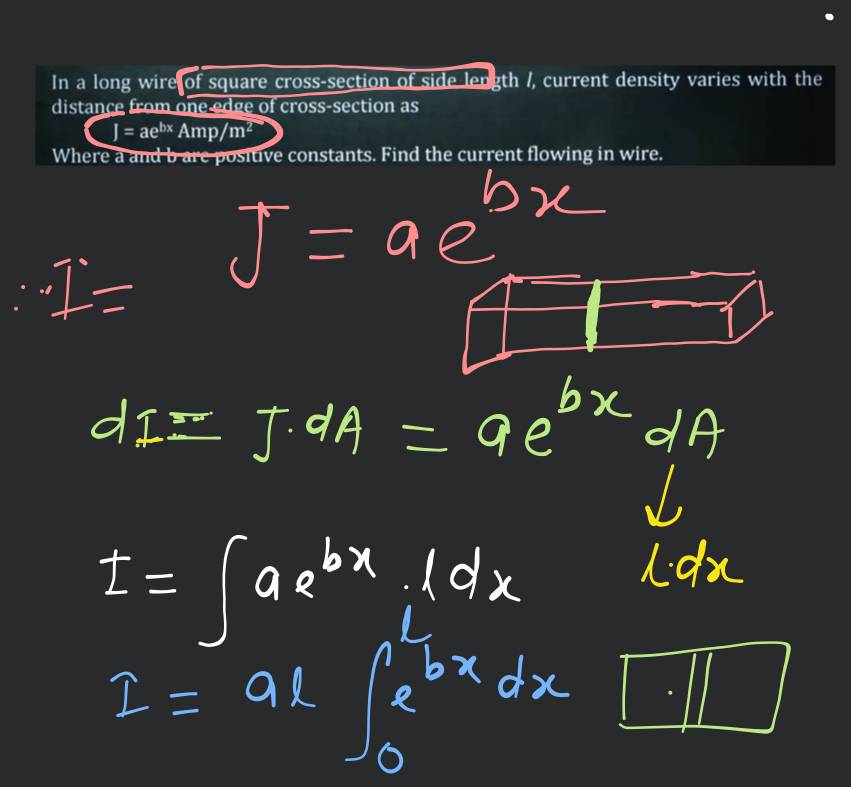 In a long wire of square cross-section of side length l, current density varies with the
distance from one edge of cross-section as
J = ae^{bx} Amp/m²
Where a and b are positive constants. Find the current flowing in wire.
J = ae^{bx}
∴ I =
dI = J·dA = ae^{bx} dA
l·dx
I = ∫ ae^{bx} . l dx
I = al ∫₀^l e^{bx} dx